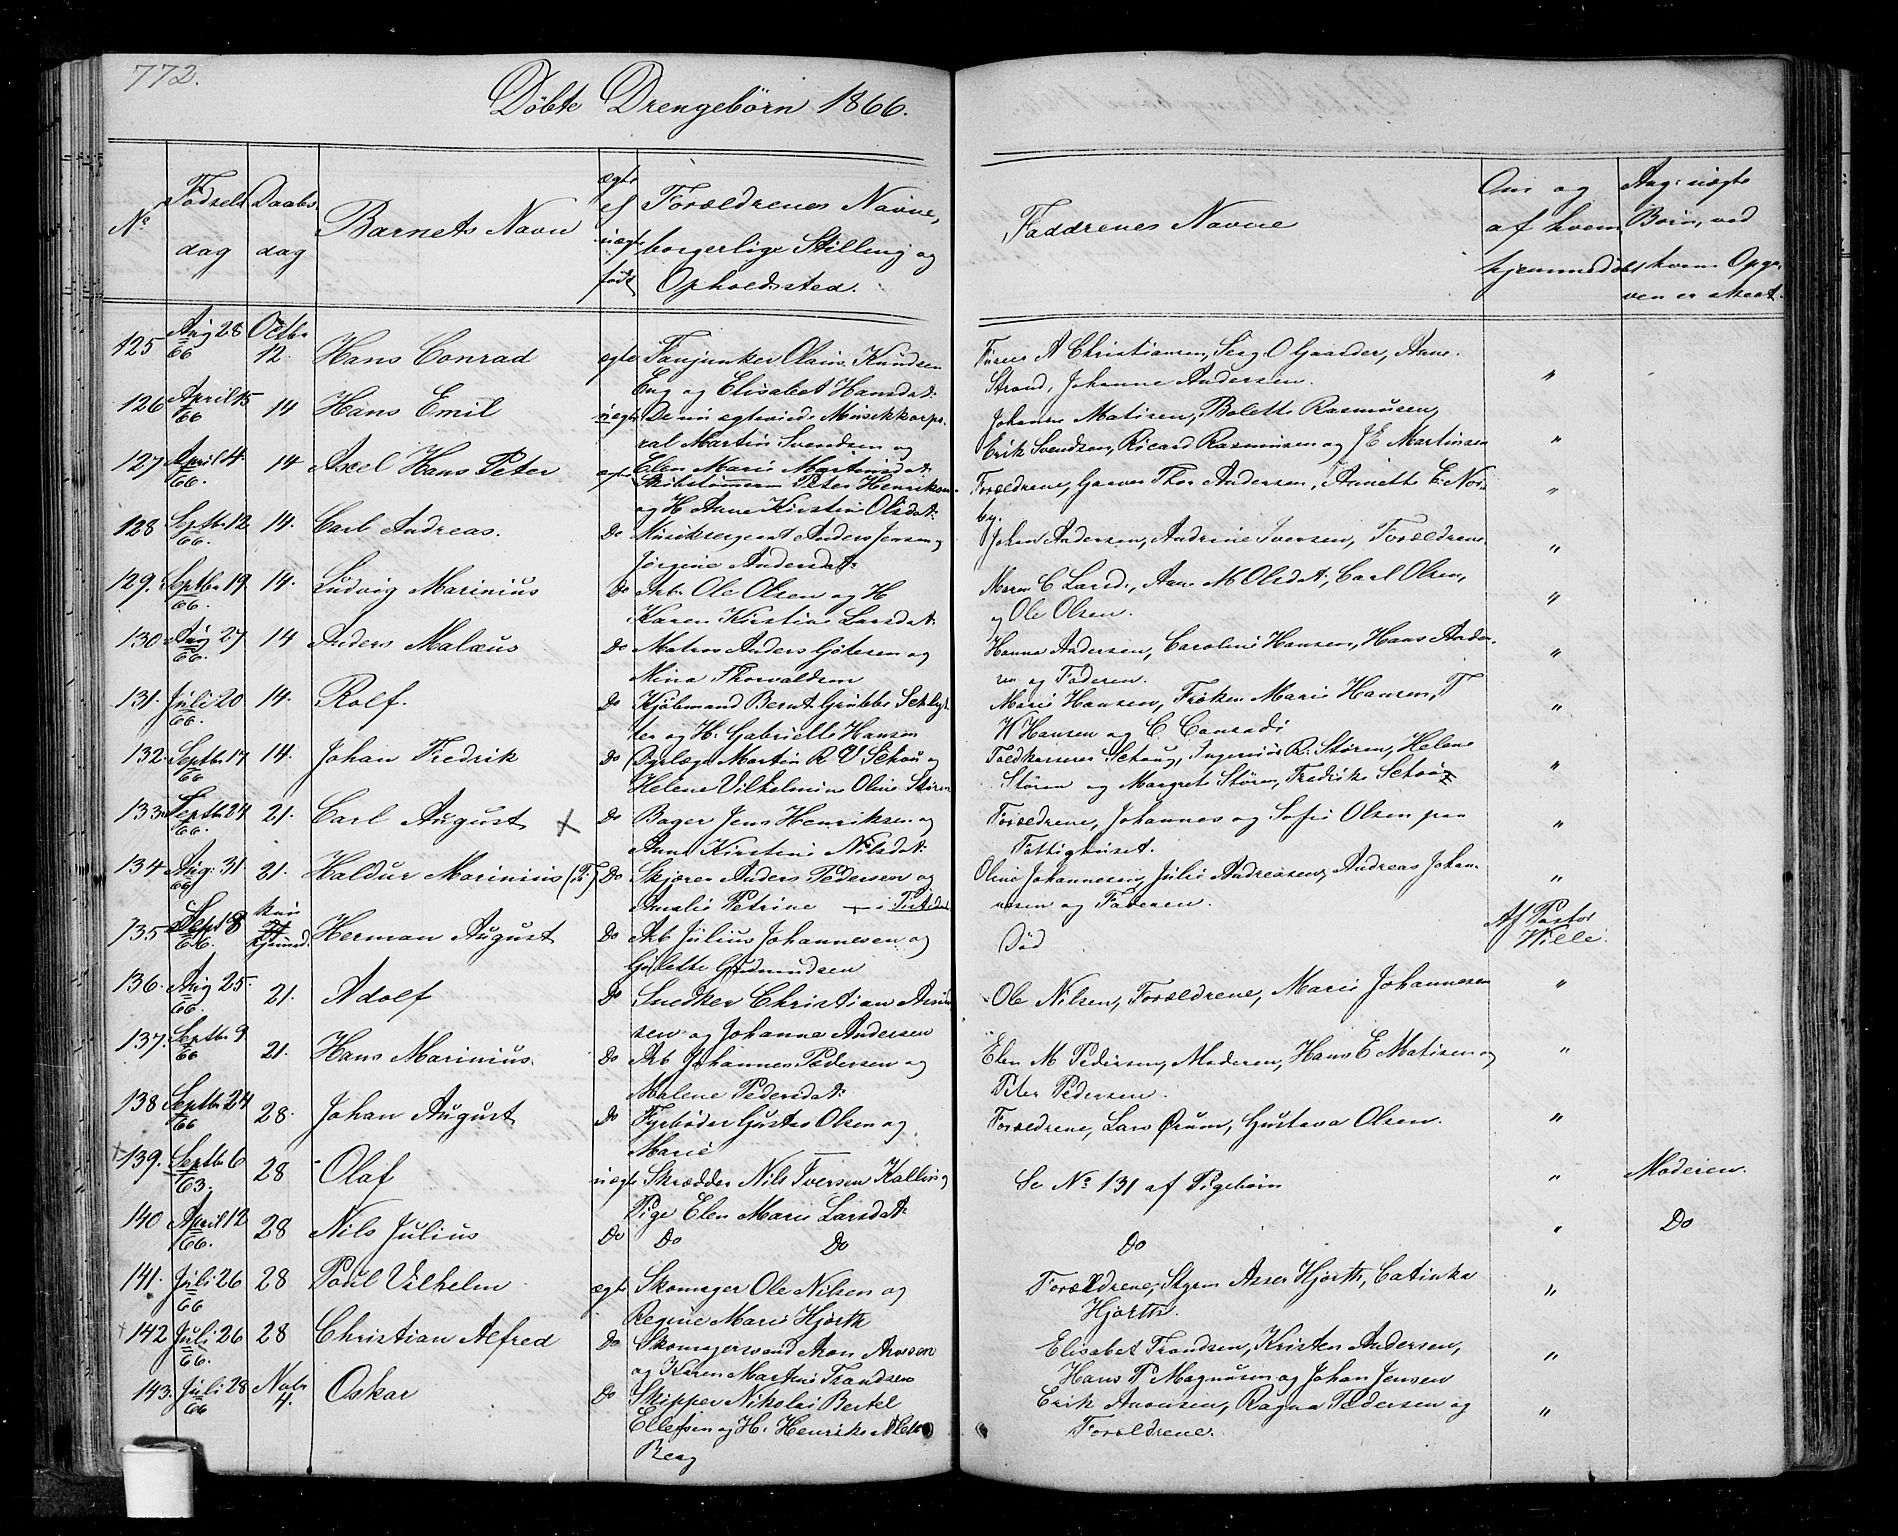 772.
Döbte Drengebörn 1866.
No
Födsels dag
Daabs dag
Barnets Navn
ægte el uægte födt
Forældrenes Navne, borgerlige Stilling og Opholdssted.
Faddrenes Navne
Om og af hvem hjemmedöbt
Ang: uægte Börn, ved hvem Opgaven er skeet.
125 Aug 28 66 Octbr 12. Hans Conrad ægte Fanejunker Olaus Knudsen
Eng og Elisabet Hansdat:
A Christiansen, Serg O Gaarder, Anne
Strand, Johanne Andersen. "
126 April 15 66 14 Hans Emil uægte De nu egteviede Musikkorpo
ral Martin Svendsen og
Elen Marie Martinsdat:
Johannes Matisen, Bolette Rasmusen,
Erik Svendsen, Ricard Rasmusen og J E Martinsen "
127 April 14 66. 14 Axel Hans Peter ægte Peter Henriksen
og H Anne Kirstin Olsdat:
Forældrene, Garver Thor Andersen, Annette E. Nor
by. "
128 Septbr 12 66. 14. Carl Andreas. Do Musiksergeant Anders Jensen og
Jörgine Andersdat:
Johan Andersen, Andrine Iversen, Forældrene "
129. Septbr 19 66. 14. Ludvig Marinius Do Arb. Ole Olsen og H
Karen Kirstine Larsdat:
Maren C Larsd:, Ane M Olsdat:, Carl Olsen,
og Ole Olsen. "
130 Aug 27 66. 14 Anders Malæus Do Matros Anders Götesen og
Mina Thorvaldsen
Hanna Andersen, Caroline Hansen, Hans Ander
sen og Faderen. "
131. Juli 20 66. 14. Rolf. Do Kjöbmand Bernt Grubbe
og H. Gabrielle Hansen
Marie Hansen, Fröken Marie Hansen, T
W Hansen og C Conradi "
132. Septbr 17 66 14. Johan Fredrik Do Martin R V Schou og
Helene Vilhelmine Oline Stören
Toldkasserer Schoug, Ingeniör R. Stören, Helene
Stören og Margrete Stören, Fredrikke Schoug "
133. Septbr 24 66. 21. Carl August x Do Bager Jens Henriksen og
Anne Kirstine Nilsdat:
Forældrene, Johannes og Sofie Olsen paa
Fattighuset. "
134 Aug: 31 66 21. Haldur Marinius (T.) Do Skjörer Anders Pedersen og
Amalie Petrine
Oline Johannesen, Julie Andreasen, Andreas Johan
nesen og Faderen. "
135 Sept 8 66. kun hjemmed: Herman August Do Arb Julius Johannesen og
Gulette Gudmundsen
Död Af Pastor
Wille.
136. Aug 25. 66. 21. Adolf Do Snedker Christian
sen og Johanna Andersen
Ole Nilsen, Forældrene, Marie Johannesen "
137. Septbr 9 66 21. Hans Marinius. Do Arb Johannes Pedersen og
Malene Pedersdat:
Elen M Pedersen, Moderen, Hans E Matisen og
Peter Pedersen. "
138 Septbr 24 66 28. Johan August Do Fyrböder Gustav Olsen og
Marie
Forældrene, Lars Örum, Gustava Olsen. "
139. Septbr 6 63. 28 Olaf uægte Skrædder Nils Iversen Kalling
Pige Elen Marie Larsdat:
Se No 131 af Pigebörn " Moderen.
140 April 12 66. 28 Nils Julius Do Do Do
Do " Do
141. Juli 26 66 28 Poul Vilhelm ægte Skomager Ole Nilsen og
Regine Marie Hjorth
Forældrene, Styrm Asser Hjorth, Catinka
Hjorth. "
142 Juli 26 66. 28 Christian Alfred Do Skomagersvend Aron Aronsen
og Karen Martine Frandsen
Elisabet Frandsen, Kristen Andersen,
Hans P Magnusen og Johan Jensen "
143. Juli 28 66 Novbr 4. Oskar Do Skipper Nikolai Bertel
Ellefsen og H. Henrikke
Berg
Erik Aronsen, Ragna Pedersen og
Forældrene. "